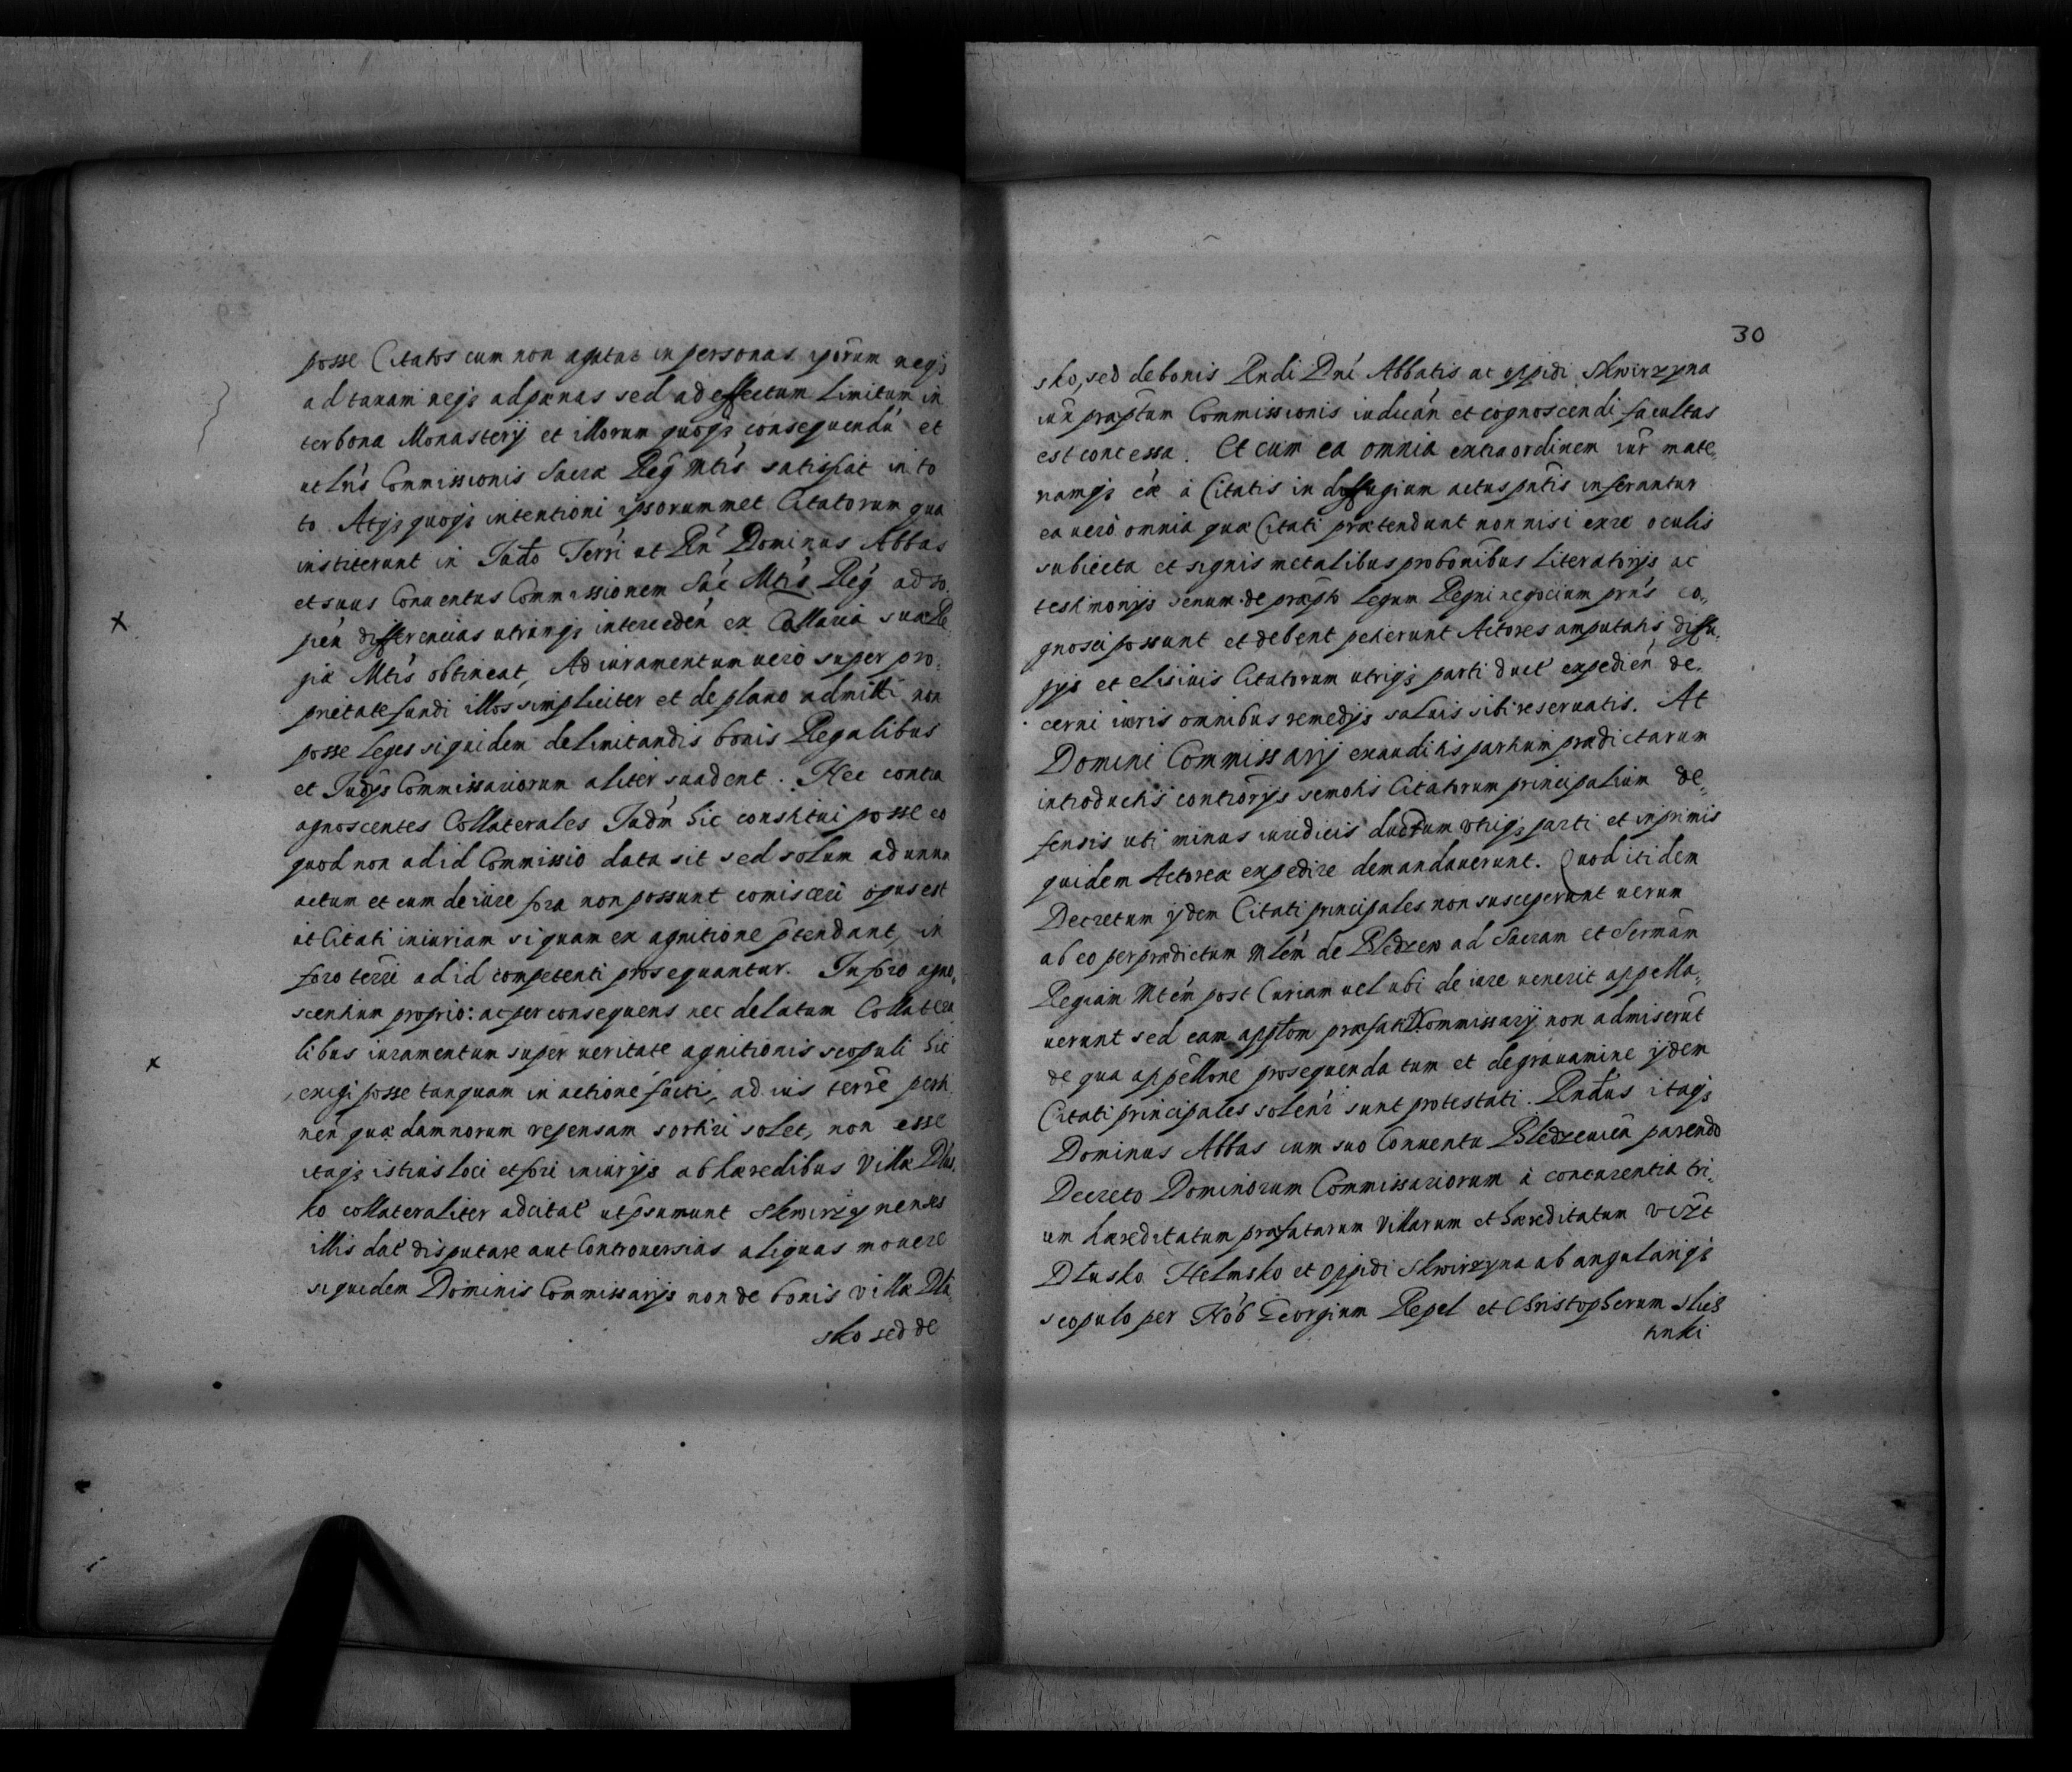 posse Citatos cum non agatur in personas ipōrum neqꝫ
ad taxam neqꝫ ad pænas sed ad effectum limitum in
ter bona Monasterij et illorum quoqꝫ consequendū et
ut Lrīs Commissionis Sacræ Reḡ Mtīs satisfiat in to
to. Atqꝫ quoqꝫ intentioni ipsorummet Citatorum qua
institerunt in Judō Terrī ut Rn̄ Dominus Abbas
et suus Conuentus Commissionem Sāe Mtīs Reḡ ad so
pień differencias utrinqꝫ interceden̄ ex Cellaria suæ Re
giæ Mtīs obtineat, Ad iuramentum uero super pro,
prietate fundi illos simpliciter et de plano admitti non
posse Leges siquidem de limitandis bonis Regalibus
et Judijs Commissariorum aliter suadent. Hec contra
agnoscentes Collaterales Judm̄ hic constitui posse eo
quod non ad id Commissio data sit sed solum ad unum
actum et cum de iure fora non possunt comisceri opus est
ut Citati iniuriam si quam ex agnitione p̄tendant, in
foro terrē ad id competenti prosequantur. In foro agno,
scentium proprio: ac per consequens nec delatum Collatera
libus iuramentum super ueritate agnitionis scopuli hic
exigi posse tanquam in actione facti, ad ius terrē perti
nen̄ quæ damnorum repensam sortiri solet, non esse
itaqꝫ istius loci et fori iniurijs ab hæredibus Villæ Dłus,
ko collateraliter adcitat̄ ut p̄sumunt Skwirzynensis
illis dat̄ disputare aut Controuersias aliquas mouere
siquidem Dominis Commissarijs non de bonis villæ Dłu,
sko sed de
30
sko, sed de bonis Rn̄di Dnī Abbatis ac oppidi Skwirzyna
iux̄ præscptum Commissionis iudicān et cognoscendi facultas
est concessa. Et cum ea omnia extraordinem iur̄ mate,
riamqꝫ eæ à Citatis in diffugium actus pn̄tis inferantur
ea uerò omnia quæ Citati prætendunt non nisi ex re oculis
subiecta et signis metalibus probonibus Literatorijs ac
testimonijs senum de præscpto Legum Regni negocium pn̄s co,,
gnosci possunt et debent petierunt Actores amputatis diffu,
gijs et elisiuis Citatorum utriqꝫ parti duct̄ expedien̄ de,
cerni iuris omnibus remedijs saluis sibi reseruatis. At
Domini Commissarij exauditis partium prædictarum
introductis controūersijs semotis Citatorum principalium de,
fensis uti minus iuridicis ductum utriqꝫ parti et inprimis
quidem Actoreæ expedire demandauerunt. Quod itidem
Decretum ijdem Citati principales non susceperunt uerum
ab eo per prædictum Mlēm de Bledzew ad Sacram et Sermām
Regiam Mtēm post Curiam uel ubi de iure uenerit appella,
uerunt sed eam appltom præfati D. Commissarij non admiserūt
de qua appellone prosequenda tum et de grauamine ijdem
Citati principales solenr̄ sunt protestati. Rndūs itaqꝫ
Dominus Abbas cum suo Conuentu Bledzeuien̄ parendo
Decreto Dominorum Commissariorum à concurentia tri,
um hæreditatum præfatarum Villarum et hæreditatum vizt
Dłusko Hełmsko et Oppidi Skwirzyna ab angulariqꝫ
scopulo per Nob̄ Georgium Repel et Christopherum Slich
tinki